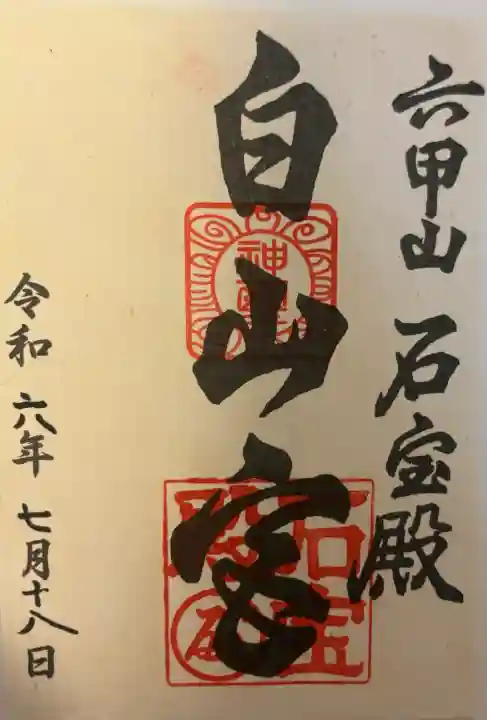 六甲山 石宝殿
白山宮
令和六年七月十八日
石宝殿